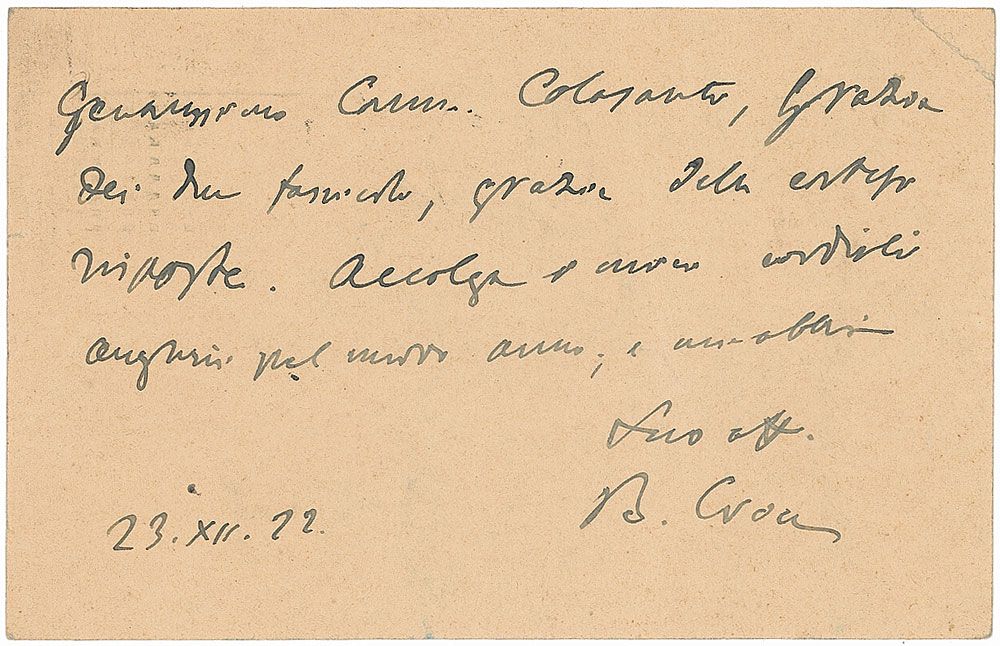 Gentilissimo Comm. Colasanti, grazie
dei due fascicoli, grazie della cortese
risposta. Accolga i miei cordiali
auguri pel nuovo anno; e mi abbia
Suo aff.
B. Croce
23.XII.22.